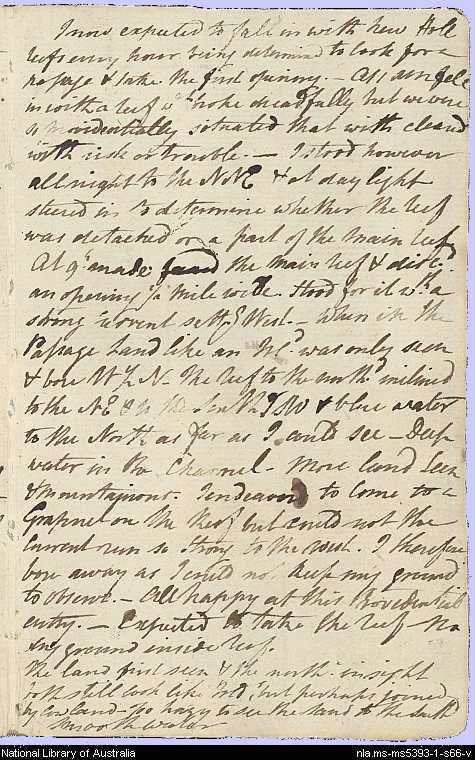 I now expected to fall in with New Holl
reefs every hour being determined to look for a
passage & take the first opening. — At 1 AM fell
in with a reef wch broke dreadfully but we were
so providentially situated that with cleared
with risk or trouble. — I stood however
all night to the NNE & at day light
steered in to determine whether the reef
was detached or a part of the main reef
At 9h made the main reef & disc
an opening ½ mile wide. Stood for it wth a
strong current settg West. — When in the
Passage Land like an Isd was only seen
& bore WbN — The reef to the north inclined
to the NE & to the South SSW & blue water
to the North as far as I could see — Deep
water in the Channel — more land seen
& mountainous. I endeavord to come to a
Grapnel on the Reef but could not the
Current run so strong to the West. I therefore
bore away as I could not keep my ground
to observe. — All happy at this Providential
entry. — Expected to take the reef No
ancg ground inside reef.
The land first seen & the north in sight
both still look like Isds, but perhaps joined
by low land — too hazy to see the land to the South
Smooth water
National Library of Australia
nla.ms-ms5393-1-s66-v